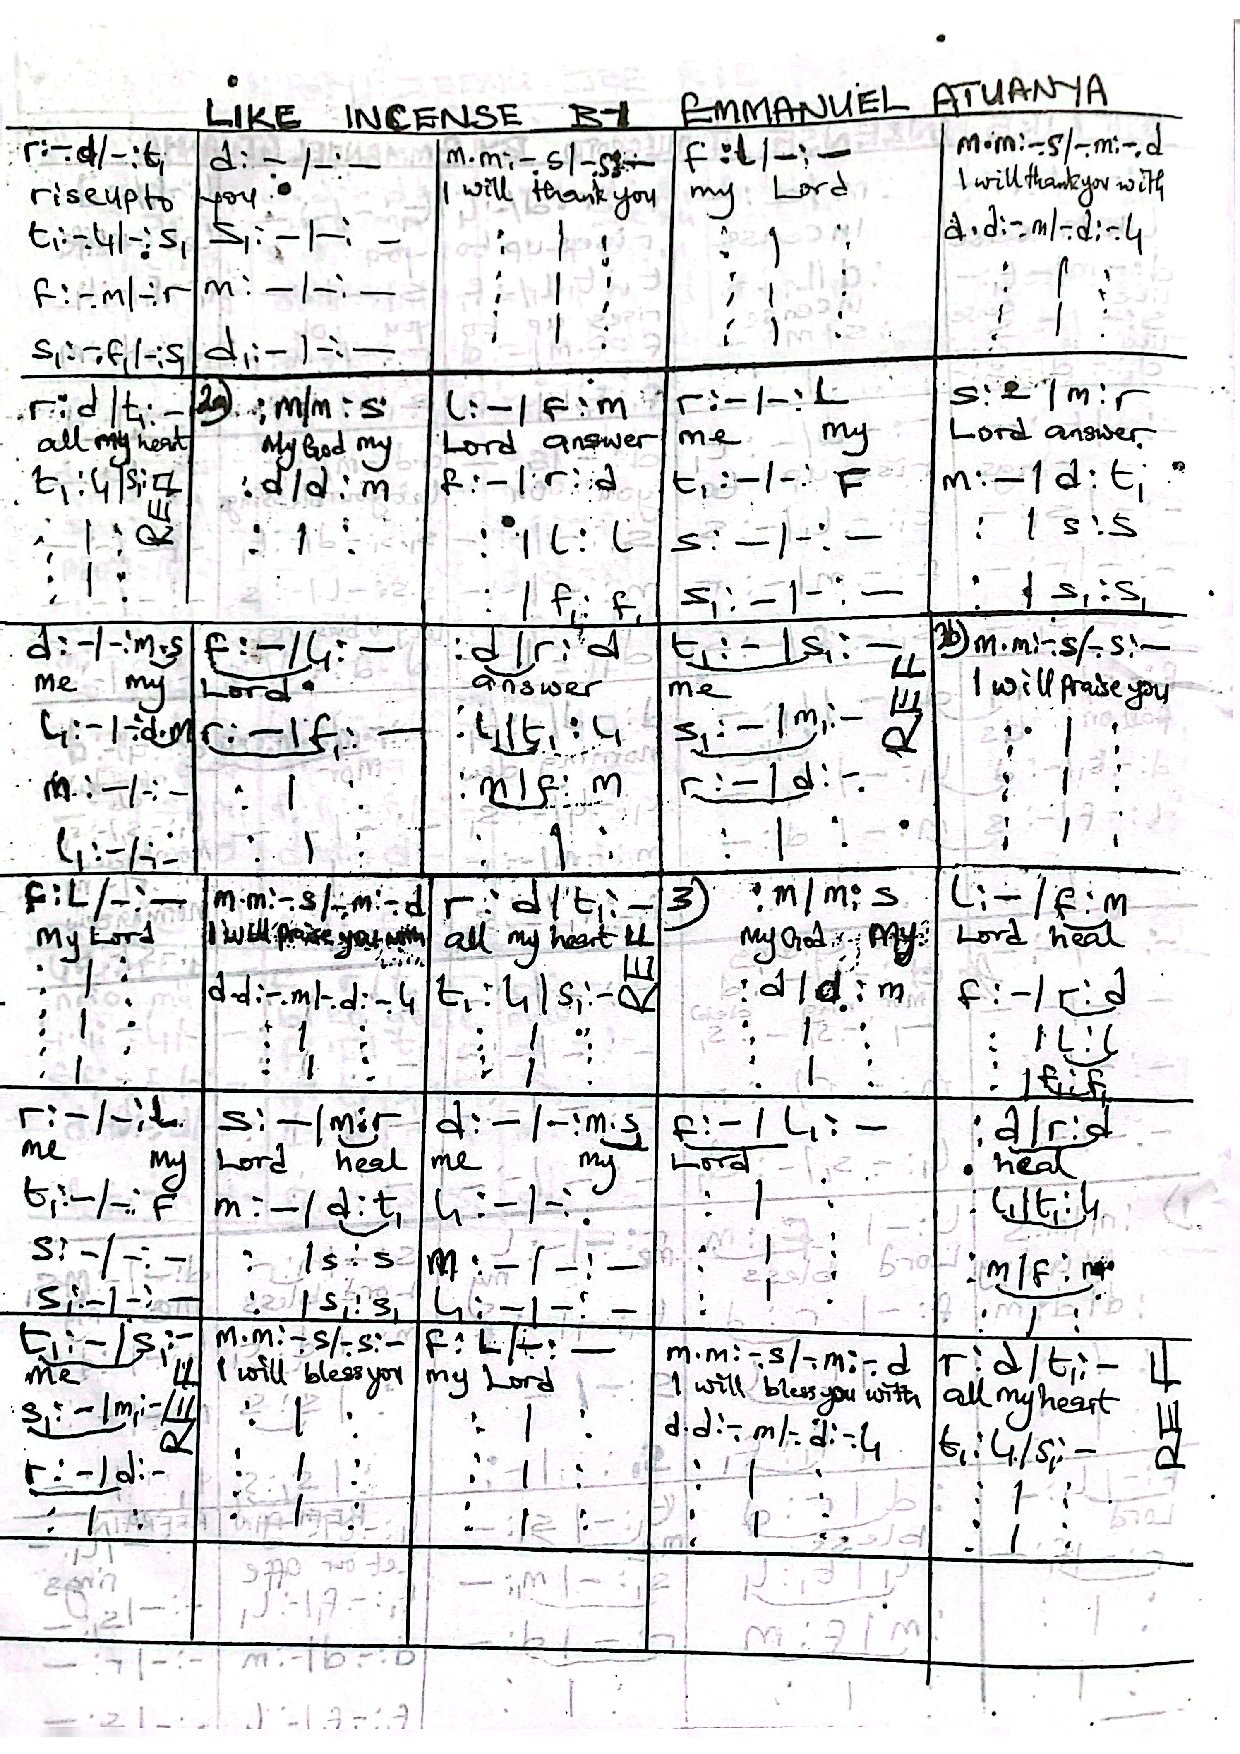 LIKE INCENSE BY EMMANUEL ATUANYA
r:-.d/-:t₁
rise up to
t₁:-.l₁/-:s₁
f:-.m/-:r
s₁:-.f₁/-:s₁
d:-/-:-
you
s₁:-/-:-
m:-/-:-
d₁:-/-:-
m.m:-.s/-.s:-
I will thank you
: | :
: | :
: | :
f:l/-:-
my Lord
: | :
: | :
: | :
m.m:-.s/-.m:-.d
I will thank you with
d.d:-.m/-.d:-.l₁
: | :
: | :
r:d/t₁:-
all my heart
t₁:l₁/s₁:-
: | :
: | :
REF
2a) :m/m:s
My God my
:d/d:m
: | :
l:-/f:m
Lord answer
f:-/r:d
: | l:l
: | f₁:f₁
r:-/-:L
me my
t₁:-/-:F
s:-/-:-
s₁:-/-:-
s:-/m:r
Lord answer
m:-/d:t₁
: | s:s
: | s₁:s₁
d:-/-:m.s
me my
l₁:-/-:d.m
m:-/-:-
l₁:-/-:-
f:-/l₁:-
Lord
r:-/f₁:-
: | :
: | :
:d/r:d
answer
:l₁/t₁:l₁
:m/f:m
: | :
t₁:-/s₁:-
me
s₁:-/m₁:-
r:-/d:-
: | :
REF
2b) m.m:-.s/-.s:-
I will praise you
: | :
: | :
: | :
f:L/-:-
my Lord
: | :
: | :
: | :
m.m:-.s/-.m:-.d
I will praise you with
d.d:-.m/-.d:-.l₁
: | :
: | :
r:d/t₁:-
all my heart
t₁:l₁/s₁:-
: | :
: | :
REF
3) :m/m:s
My God My
:d/d:m
: | :
: | :
l:-/f:m
Lord heal
f:-/r:d
: | l:l
: | f₁:f₁
r:-/-:L
me my
t₁:-/-:F
s:-/-:-
s₁:-/-:-
s:-/m:r
Lord heal
m:-/d:t₁
: | s:s
: | s₁:s₁
d:-/-:m.s
me my
l₁:-/-:
m:-/-:-
l₁:-/-:-
f:-/l₁:-
Lord
: | :
: | :
: | :
:d/r:d
heal
:l₁/t₁:l₁
:m/f:m
: | :
t₁:-/s₁:-
me
s₁:-/m₁:-
r:-/d:-
: | :
REF
m.m:-.s/-.s:-
I will bless you
: | :
: | :
: | :
f:L/-:-
my Lord
: | :
: | :
: | :
m.m:-.s/-.m:-.d
I will bless you with
d.d:-.m/-.d:-.l₁
: | :
: | :
r:d/t₁:-
all my heart
t₁:l₁/s₁:-
: | :
: | :
REF